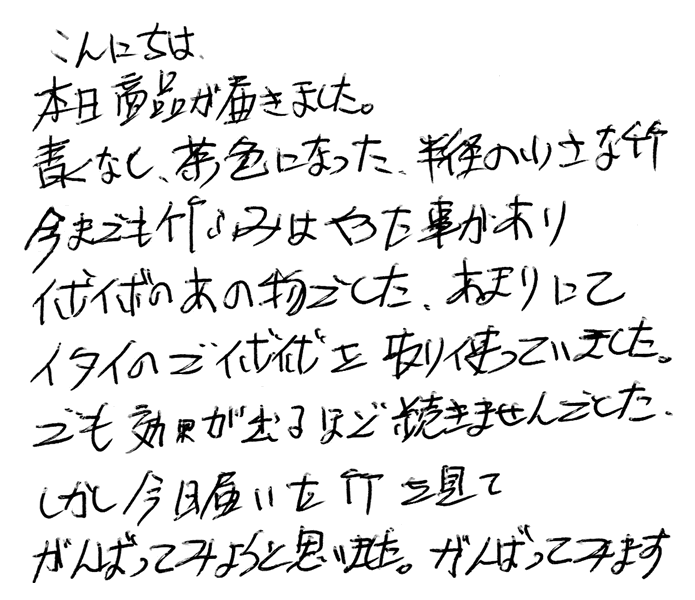 こんにちは、
本日商品が届きました。
青くなし、茶色になった、半径の小さな竹
今までも竹ふみはやった事があり
イボイボのあの物でした、あまりにて
イタイのでイボイボを取り使っていました。
でも効果が出るほど続きませんでした、
しかし今日届いた竹を見て
がんばってみようと思いました。がんばってみます